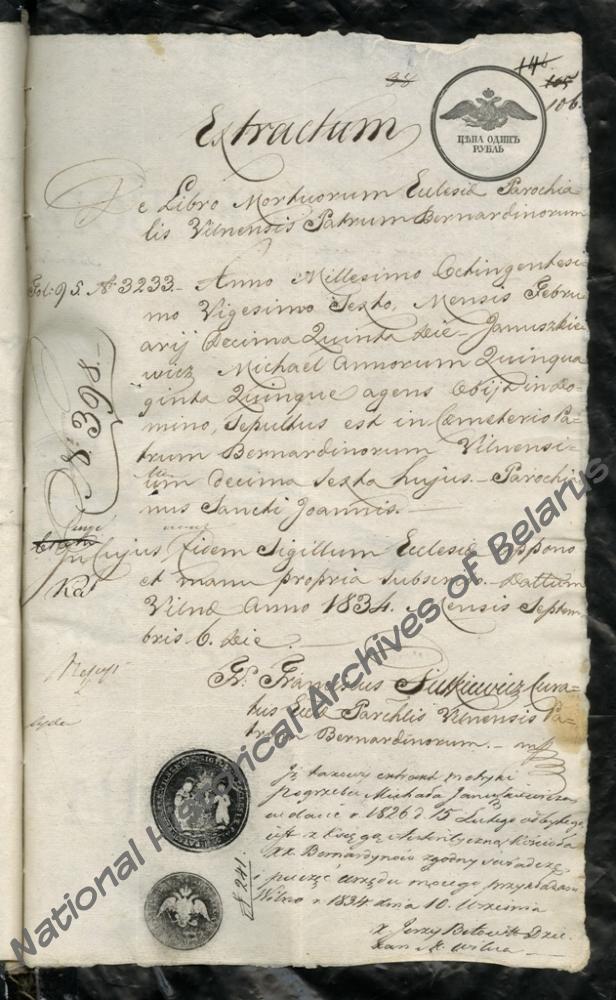 38
146
105
106.
ЦѢНА ОДИНЪ
РУБЛЬ
Extractum
De Libro Mortuorum Eclesiæ Parochia
lis Vilnensis Patrum Bernardinorum
Fol: 95. N. 3233. Anno Millesimo Octingentesi
mo Vigesimo Sexto, Mensis Febru
arij Decima Quinta die Januszkie
wicz Michael Annorum Quinqua
ginta Quinque agens Obijt in Do
mino, Sepultus est in Cæmeterio Pa-
trum Bernardinorum Vilnensi
um Decima Sexta hujus. Parochi
nus Sancti Joannis.
N. 398.
In Cujus fidem Sigillum Eclesiæ appono
et manu propria subscribo. Dattum
Vilnæ Anno 1834. Mensis Septem
bris 6. Die.
Fr. Franciscus Sutkiewicz Cura-
tus Ecclæ Parchlis Vilnensis Pa-
trum Bernardinorum. mp
Iż takowy extrakt metryki
pogrzebu Michała Januszkiewicza
w dacie r. 1826 d. 15 Lutego odbytego
jest z Księgą Autentyczną Kościoła
XX. Bernardynow zgodny świadczę
i pieczęć urzędu mojego przykładam
Wilno r. 1834 dnia 10. Września
x Jerzy Dzie
kan M. Wilna
N 241.
National Historical Archives of Belarus